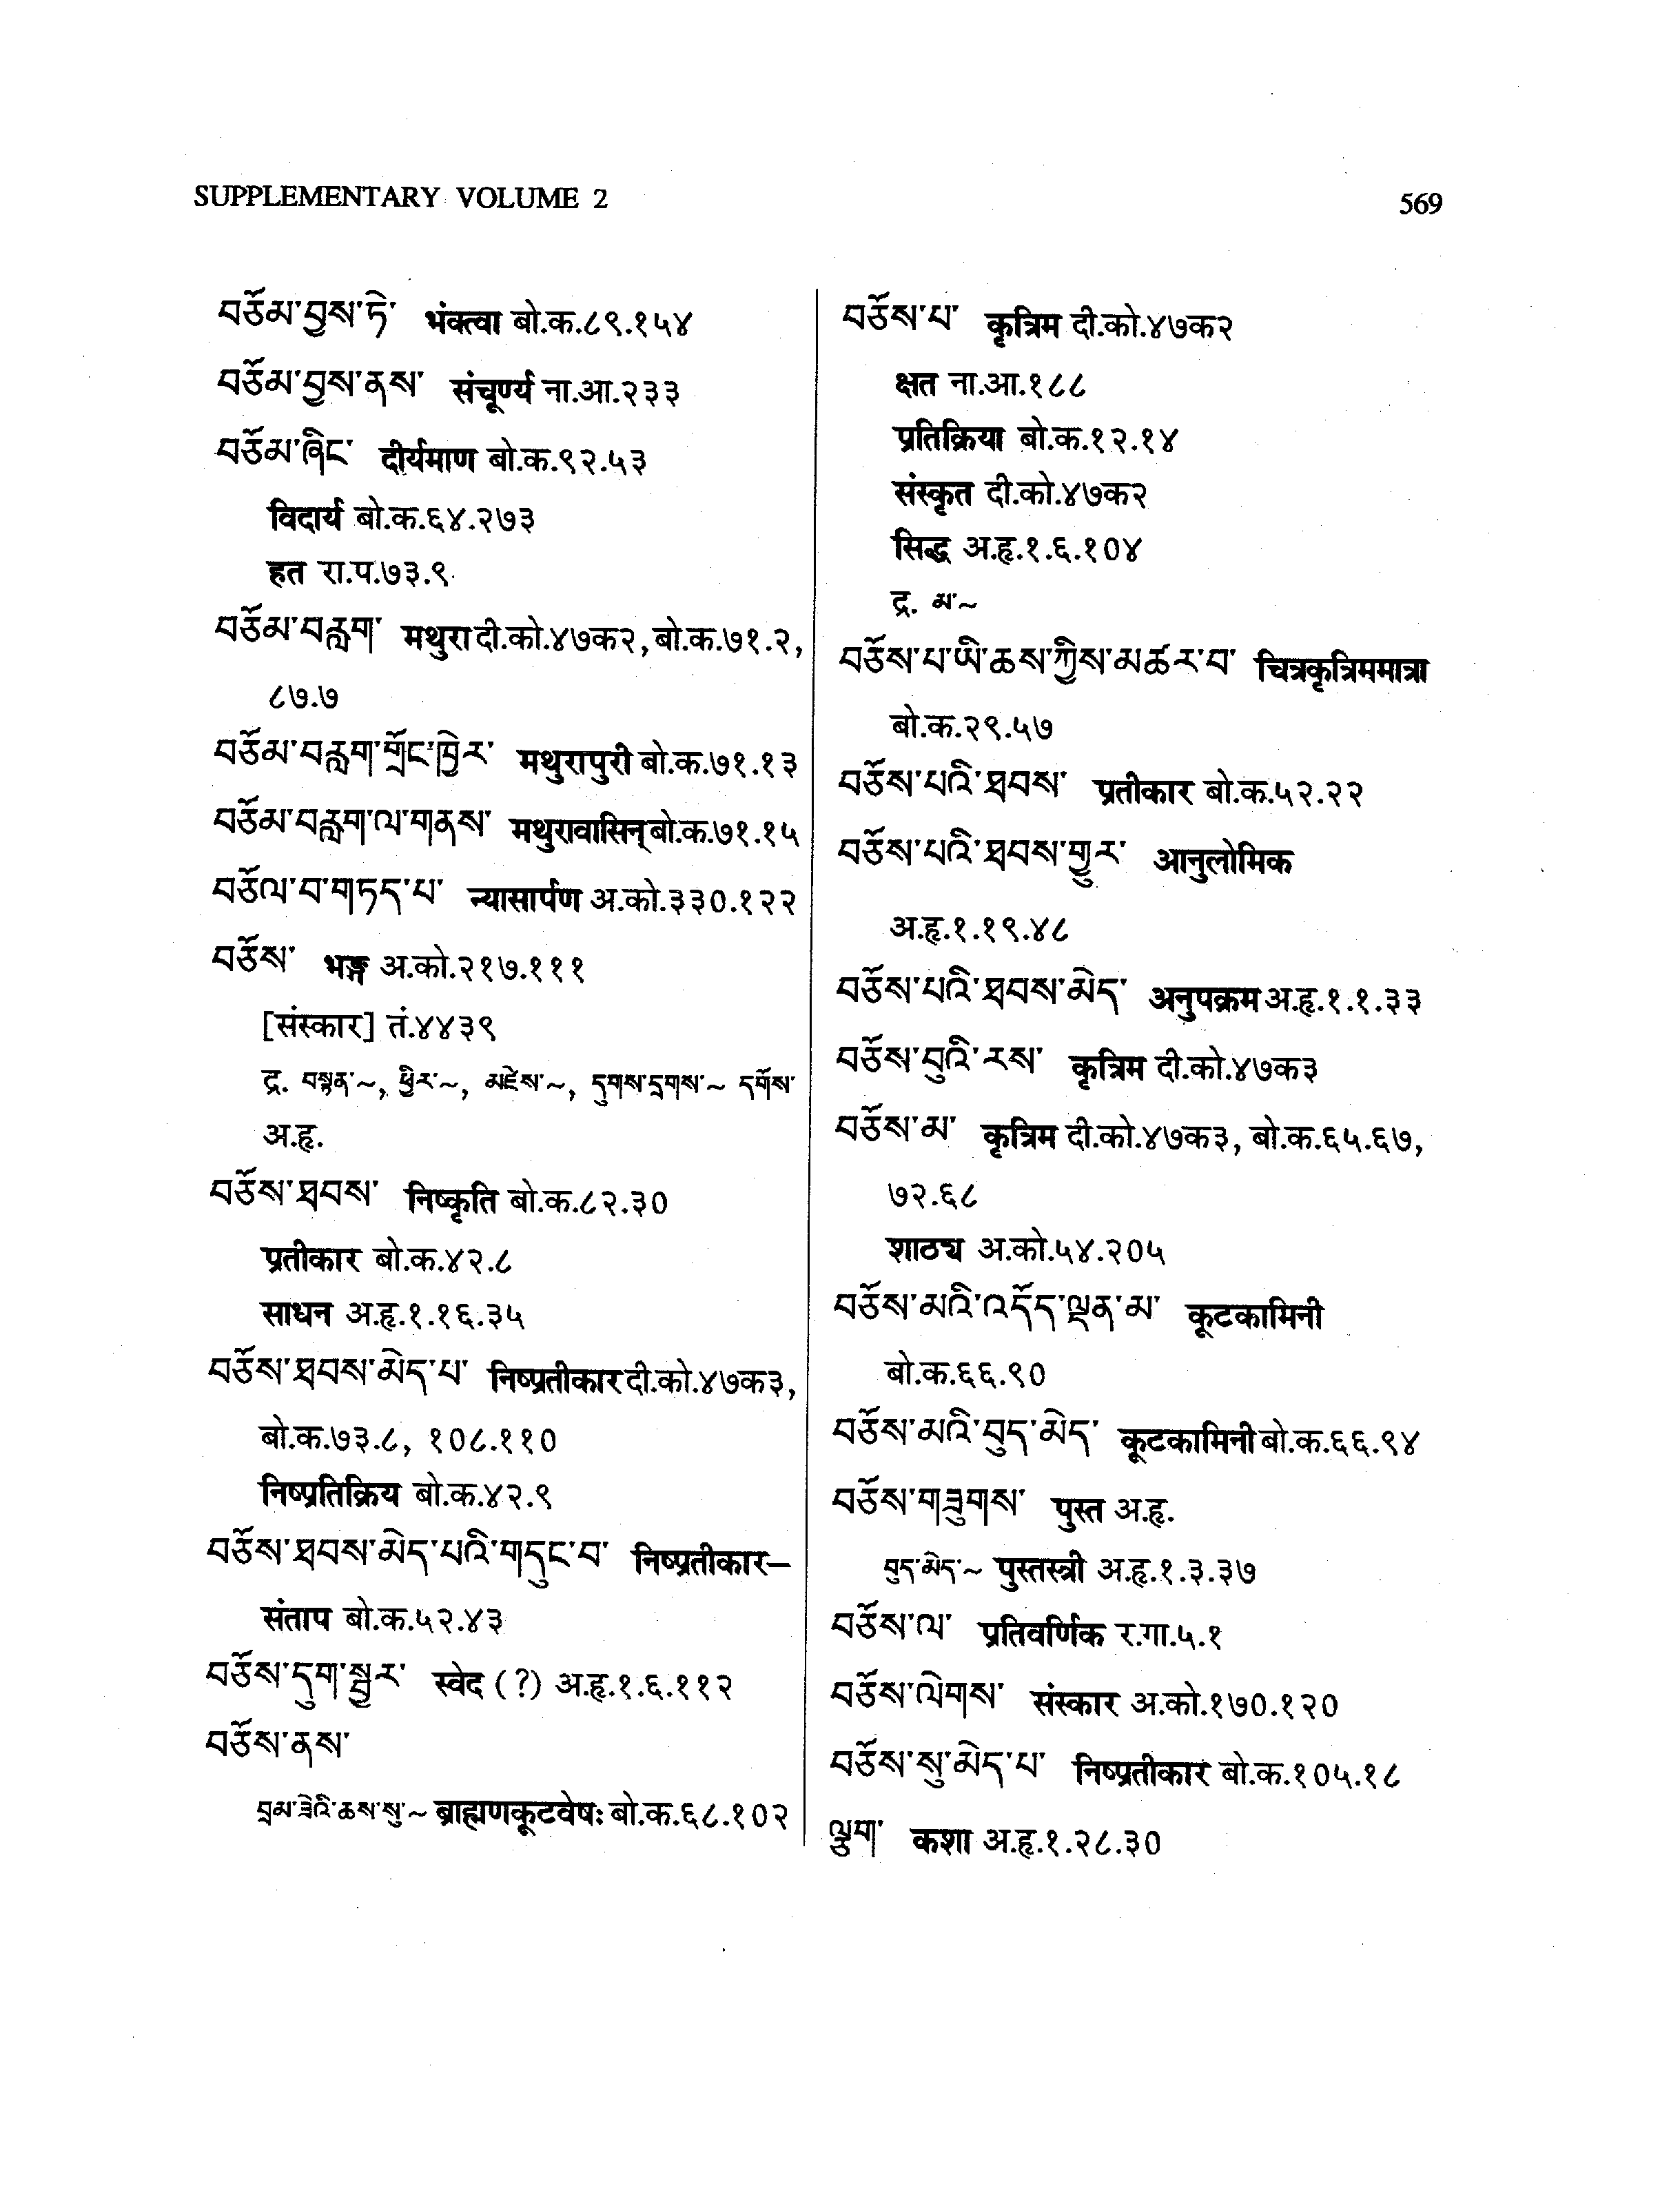 SUPPLEMENTARY VOLUME 2
569
བཅོམ་བྱས་ཏེ་ भंक्त्वा बो.क.८९.१५४
བཅོམ་བྱས་ནས་ संचूर्ण्य ना.आ.२३३
བཅོམ་ཞིང་ दीर्यमाण बो.क.९२.५३
विदार्य बो.क.६४.२७३
हत रा.प.७३.९
བཅོམ་བརླག་ मथुरा दी.को.४७क२, बो.क.७१.२,
८७.७
བཅོམ་བརླག་གྲོང་ཁྱེར་ मथुरापुरी बो.क.७१.१३
བཅོམ་བརླག་ལ་གནས་ मथुरावासिन् बो.क.७१.१५
བཅོལ་བ་གཏད་པ་ न्यासार्पण अ.को.३३०.१२२
བཅོས་ भङ्ग अ.को.२१७.१११
[संस्कार] तं.४४३९
द्र. བསྟན་~, ཕྱིར་~, མཛེས་~, དུགས་དྲགས་~ དགོས་
अ.हृ.
བཅོས་ཐབས་ निष्कृति बो.क.८२.३०
प्रतीकार बो.क.४२.८
साधन अ.हृ.१.१६.३५
བཅོས་ཐབས་མེད་པ་ निष्प्रतीकार दी.को.४७क३,
बो.क.७३.८, १०८.११०
निष्प्रतिक्रिय बो.क.४२.९
བཅོས་ཐབས་མེད་པའི་གདུང་བ་ निष्प्रतीकार–
संताप बो.क.५२.४३
བཅོས་དུག་སྦྱར་ स्वेद (?) अ.हृ.१.६.११२
བཅོས་ནས་
བྲམ་ཟེའི་ཆས་སུ་~ ब्राह्मणकूटवेषः बो.क.६८.१०२
བཅོས་པ་ कृत्रिम दी.को.४७क२
क्षत ना.आ.१८८
प्रतिक्रिया बो.क.१२.१४
संस्कृत दी.को.४७क२
सिद्ध अ.हृ.१.६.१०४
द्र. མ་~
བཅོས་པ་ཡི་ཆས་ཀྱིས་མཚར་བ་ चित्रकृत्रिममात्रा
बो.क.२९.५७
བཅོས་པའི་ཐབས་ प्रतीकार बो.क.५२.२२
བཅོས་པའི་ཐབས་གྱུར་ आनुलोमिक
अ.हृ.१.१९.४८
བཅོས་པའི་ཐབས་མེད་ अनुपक्रम अ.हृ.१.१.३३
བཅོས་བུའི་རས་ कृत्रिम दी.को.४७क३
བཅོས་མ་ कृत्रिम दी.को.४७क३, बो.क.६५.६७,
७२.६८
शाठ्य अ.को.५४.२०५
བཅོས་མའི་འདོད་ལྡན་མ་ कूटकामिनी
बो.क.६६.९०
བཅོས་མའི་བུད་མེད་ कूटकामिनी बो.क.६६.९४
བཅོས་གཟུགས་ पुस्त अ.हृ.
བུད་མེད་~ पुस्तस्त्री अ.हृ.१.३.३७
བཅོས་ལ་ प्रतिवर्णिक र.गा.५.१
བཅོས་ལེགས་ संस्कार अ.को.१७०.१२०
བཅོས་སུ་མེད་པ་ निष्प्रतीकार बो.क.१०५.१८
ལྕུག་ कशा अ.हृ.१.२८.३०